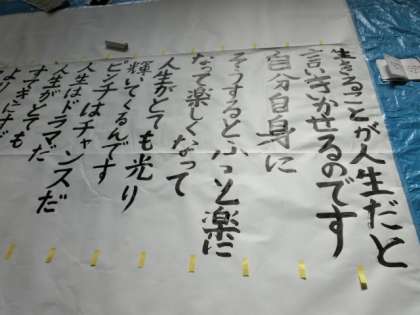 生きることが人生だと
言いきかせるのです
自分自身に
そうするとふっと楽に
なって楽しくなって
人生がとても光り
輝いてくるんです
ピンチはチャンスだ
人生はドラマだ
人生がとても